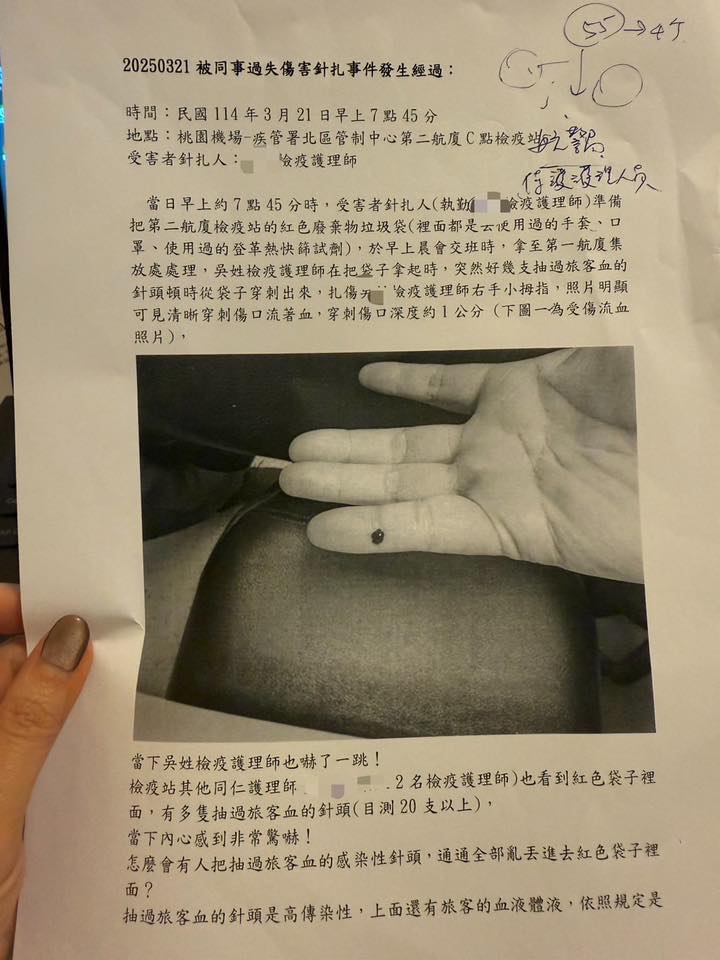 55→4个
20250321 被同事過失傷害針扎事件發生經過：
時間：民國 114 年 3 月 21 日早上 7 點 45 分
地點：桃園機場-疾管署北區管制中心第二航廈 C 點檢疫站
航警局
受害者針扎人： 檢疫護理師
保護護理人員
當日早上約 7 點 45 分時，受害者針扎人(執勤 檢疫護理師)準備
把第二航廈檢疫站的紅色廢棄物垃圾袋(裡面都是丟使用過的手套、口
罩、使用過的登革熱快篩試劑)，於早上晨會交班時，拿至第一航廈集
放處處理，吳姓檢疫護理師在把袋子拿起時，突然好幾支抽過旅客血的
針頭頓時從袋子穿刺出來，扎傷吳 檢疫護理師右手小拇指，照片明顯
可見清晰穿刺傷口流著血，穿刺傷口深度約 1 公分 (下圖一為受傷流血
照片)，
當下吳姓檢疫護理師也嚇了一跳！
檢疫站其他同仁護理師 2 名檢疫護理師)也看到紅色袋子裡
面，有多隻抽過旅客血的針頭(目測 20 支以上)，
當下內心感到非常驚嚇！
怎麼會有人把抽過旅客血的感染性針頭，通通全部亂丟進去紅色袋子裡
面？
抽過旅客血的針頭是高傳染性，上面還有旅客的血液體液，依照規定是